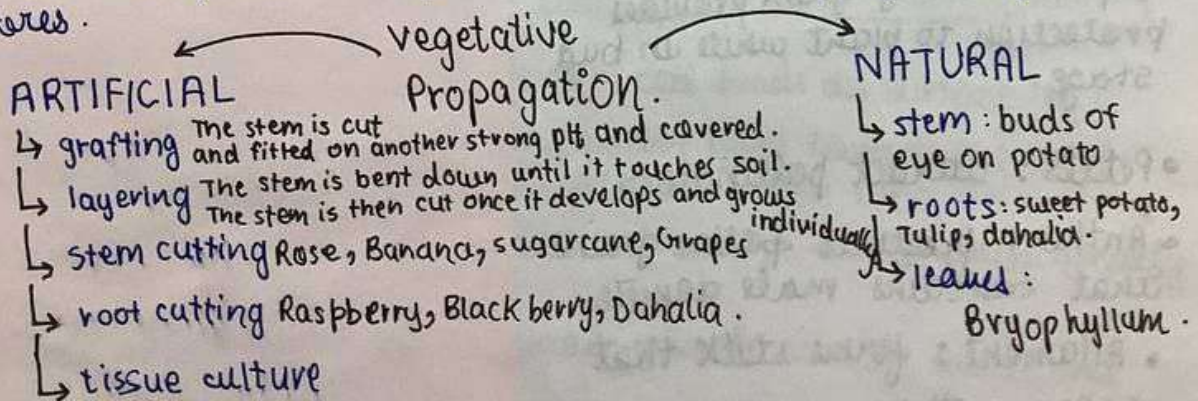 ores.
vegetative
Propagation.
ARTIFICIAL
↳ grafting The stem is cut
and fitted on another strong plt and covered.
↳ layering The stem is bent down until it touches soil.
The stem is then cut once it develops and grows
individually
↳ stem cutting Rose, Banana, sugarcane, Grapes
↳ root cutting Raspberry, Black berry, Dahalia.
↳ tissue culture
NATURAL
↳ stem : buds of
eye on potato
↳ roots : sweet potato,
Tulip, dahalia.
↳ leaves :
Bryophyllum.